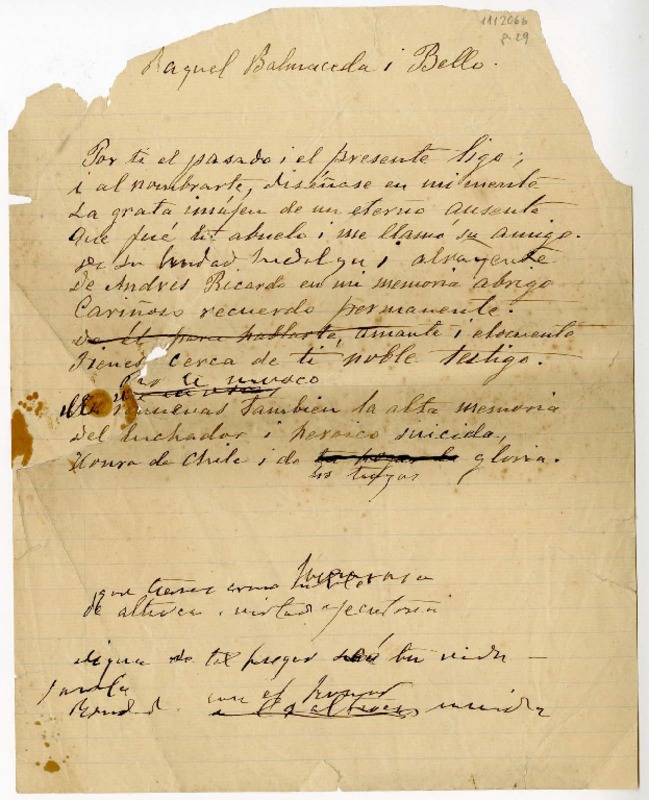 1112066
p. 29
Raquel Balmaceda i Bello.
Por ti el pasado i el presente ligo;
i al nombrarte, diséñase en mi mente
La grata imájen de un eterno ausente
Que fué tu abuelo i me llamó su amigo.
De su bondad hidalga i atrayente
De Andres Ricardo en mi memoria abrigo
Cariñoso recuerdo permanente.
De él para hablarte, amante i elocuente
Tienes cerca de ti noble testigo.
renuevas tambien la alta memoria
Del luchador i heroico suicida,
Honra de Chile i de gloria.
los tuyos
que tienes como
de altiveza i virtud ejecutoria
digna de tal tu vida
Bondad con el honor unida